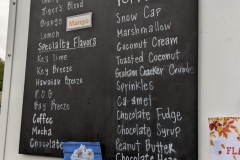 Tiger's Blood
Orange
Mango
Lemon
Specialty Flavors
Key lime
Key Breeze
Hawaiian Breeze
P.O.G
Bay Breeze
Coffee
Mocha
Chocolate
Snow Cap
Marshmallow
Coconut Cream
Toasted Coconut
Graham Cracker Crumb
Sprinkles
Caramel
Chocolate Fudge
Chocolate Syrup
Peanut Butter
Chocolate